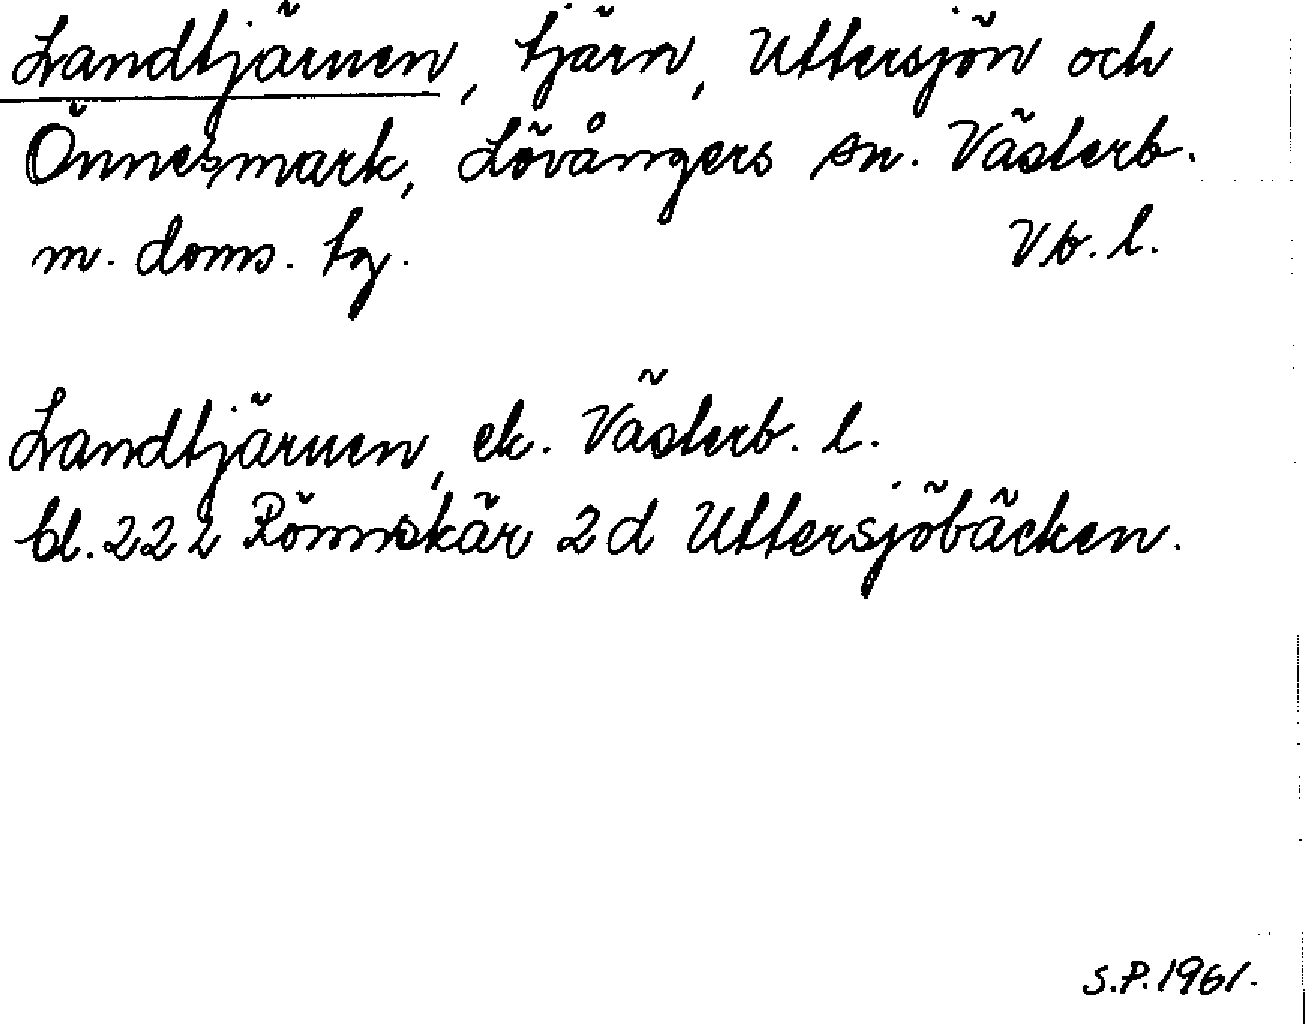 Landtjärnen, tjärn, Uttersjön och
Önnesmark, Lövångers sn. Västerb.
m. doms. tg. Vb. l.
Landtjärnen, ek. Västerb. l.
bl. 222 Rönnskär 2d Uttersjöbäcken.
S.P. 1961.